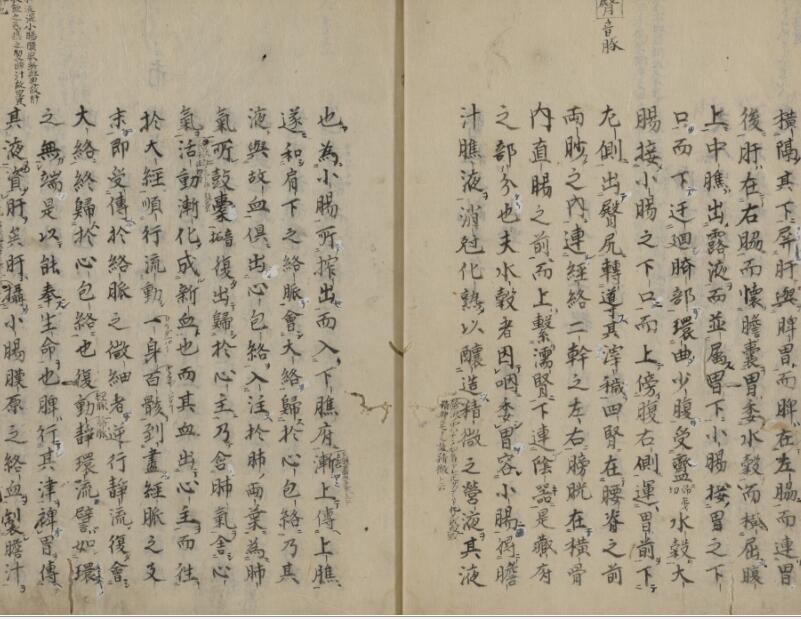 臀音豚
横隔其下屏肝與脾胃而脾在左腸而連胃
後肝在右腸而懷膽囊胃委水穀而横屈腹
上中膲出露液而並届胃下小腸接胃之下
口而下迂廻臍部環曲少腹受盛水穀大
腸接小腸之下口而上傍腹右側運胃前下
左側出臀尻轉導其滓穢四腎在腰脊之前
兩䏚之内連經絡二幹之左右膀胱在横骨
内直腸之前而上繫濡腎下連陰器是蔵府
之部分也夫水穀者因咽委胃容小腸得膽
汁膲液消尅化熟以釀造精微之營液其液
也為小腸所搾出而入下膲府漸上傳上膲
遂和肩下之絡脈會大絡歸於心包絡乃其
液與故血俱出心包絡入注於肺兩葉為肺
氣所鼓橐復出歸於心主乃含肺氣舍心
氣活動漸化成新血也而其血出心主而往
於大經順行流動一身百骸到盡經脈之支
末即受傳於絡脈之微細者逆行靜流復會
大絡終歸於心包絡也復動靜環流譬如環
之無端是以能奉生命也脾行其津裨胃傳
其液資肝矣肝攝小腸膜原之絡血製膽汁